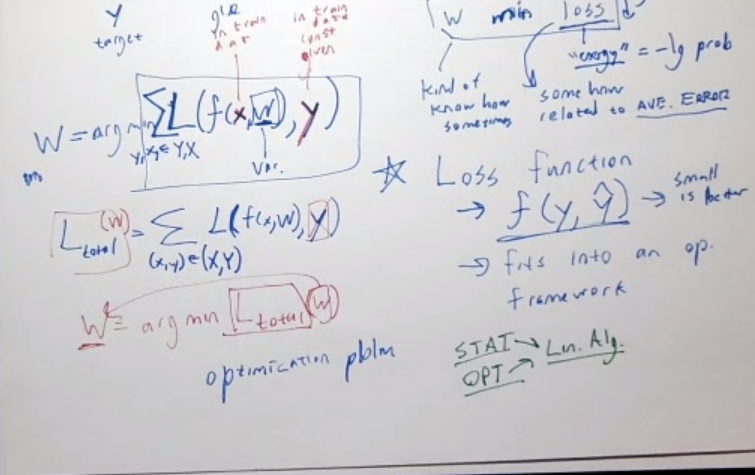 Y
target
in train
in train
data
const
given
W = argmin ∑ L(f(x,W), y)
y,x ∈ Y,X
Var.
L total (W) = ∑ L(f(x,W), y)
(x,y) ∈ (X,Y)
W = arg min L total (W)
optimization pblm
W min loss
"energy" = -lg prob
kind of
know how
sometimes
some how
related to AVE. ERROR
☆ Loss function
→ f(y, ŷ) → small
is better
→ fits into an op.
framework
STAT → Lin. Alg.
OPT